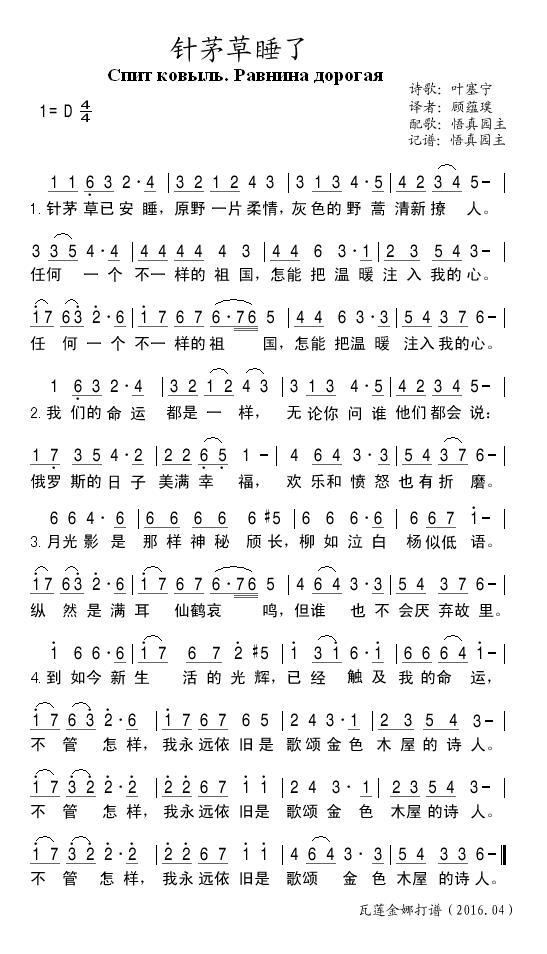 针茅草睡了
Спит ковыль. Равнина дорогая
1= D 4/4
诗歌: 叶塞宁
译者: 顾蕴璞
配歌: 悟真园主
记谱: 悟真园主
1 1 6 3 2·4 | 3 2 1 2 4 3 | 3 1 3 4·5 | 4 2 3 4 5- |
1.针茅 草已安 睡，原野一片柔情，灰色的野 蒿 清新撩 人。
3 3 5 4·4 | 4 4 4 4 4 3 | 4 4 6 3·1 | 2 3 5 4 3- |
任何 一 个 不一 样的 祖 国，怎能 把 温 暖 注 入 我的 心。
1 7 6 3 2·6 | 1 7 6 7 6·7 6 5 | 4 4 6 3·3 | 5 4 3 7 6- |
任 何 一 个 不一 样的祖 国，怎能 把温 暖 注入 我的心。
1 6 3 2·4 | 3 2 1 2 4 3 | 3 1 3 4·5 | 4 2 3 4 5- |
2.我 们的 命 运 都是 一 样， 无 论你 问 谁 他们 都会 说:
1 7 3 5 4·2 | 2 2 6 5 1 - | 4 6 4 3·3 | 5 4 3 7 6- |
俄罗 斯的 日 子 美满 幸 福， 欢 乐和 愤 怒 也 有 折 磨。
6 6 4·6 | 6 6 6 6 6 #5 | 6 6 6·6 | 6 6 7 1- |
3.月光 影 是 那 样 神 秘 颀 长，柳 如 泣 白 杨似低 语。
1 7 6 3 2·6 | 1 7 6 7 6·7 6 5 | 4 6 4 3·3 | 5 4 3 7 6- |
纵 然 是 满 耳 仙鹤 哀 鸣，但谁 也 不 会厌 弃故 里。
1 6 6·6 | 1 7 6 7 2 #5 | 1 3 1 6·1 | 6 6 7 1- |
4.到 如今 新 生 活 的 光 辉，已 经 触 及 我 的命 运，
1 7 6 3 2·6 | 1 7 6 7 6 5 | 2 4 3·1 | 2 3 5 4 3- |
不 管 怎 样，我永 远依 旧 是 歌颂 金 色 木 屋 的 诗 人。
1 7 3 2 2·2 | 2 2 6 7 1 1 | 2 4 3·3 | 2 3 5 4 3- |
不 管 怎 样，我永 远依 旧是 歌颂 金 色 木屋 的诗 人。
1 7 3 2 2·2 | 2 2 6 7 1 1 | 4 6 4 3·3 | 5 4 3 3 6-
不 管 怎 样，我永 远依 旧是 歌颂 金 色 木屋 的诗人。
瓦莲金娜打谱（2016.04）